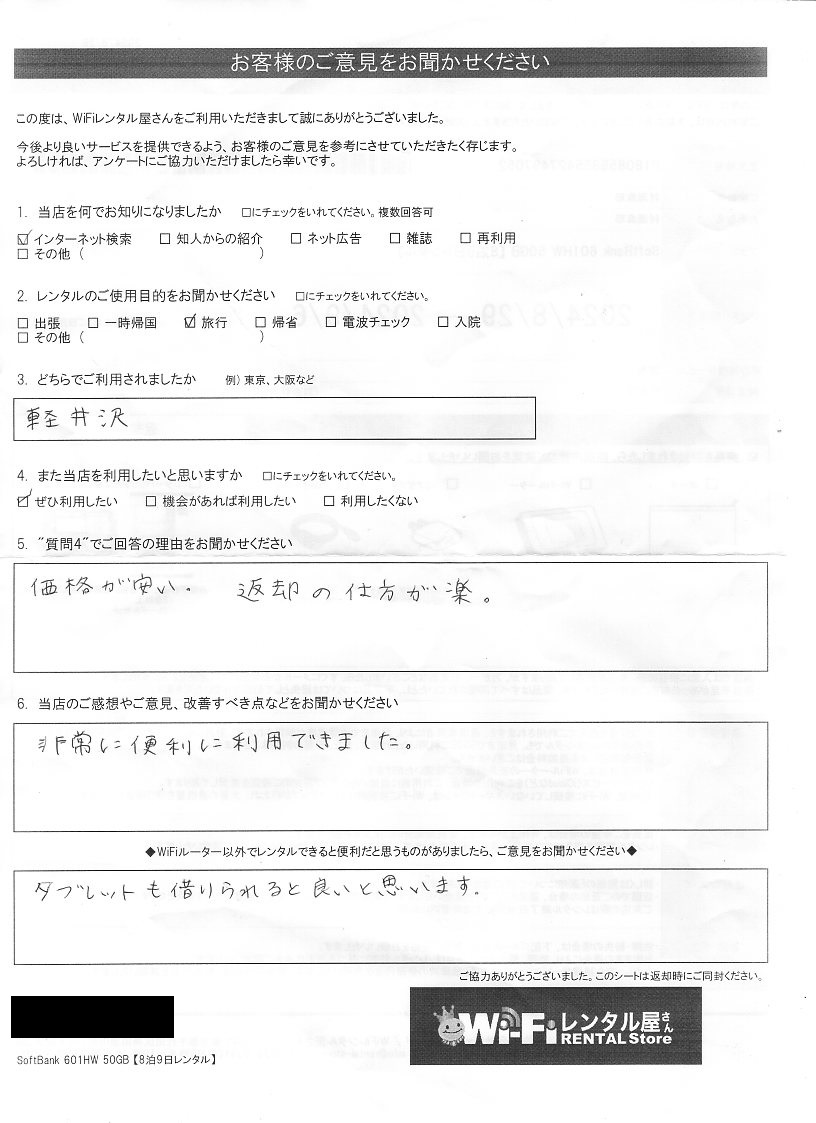 お客様のご意見をお聞かせください
この度は、WiFiレンタル屋さんをご利用いただきまして誠にありがとうございました。
今後より良いサービスを提供できるよう、お客様のご意見を参考にさせていただきたく存じます。
よろしければ、アンケートにご協力いただけましたら幸いです。
1. 当店を何でお知りになりましたか □にチェックをいれてください。複数回答可
☑インターネット検索 □ 知人からの紹介 □ ネット広告 □ 雑誌 □ 再利用
□ その他 ( )
2. レンタルのご使用目的をお聞かせください □にチェックをいれてください。
□ 出張 □ 一時帰国 ☑ 旅行 □ 帰省 □ 電波チェック □ 入院
□ その他 ( )
3. どちらでご利用されましたか 例) 東京、大阪など
軽井沢
4. また当店を利用したいと思いますか □にチェックをいれてください。
☑ ぜひ利用したい □ 機会があれば利用したい □ 利用したくない
5. "質問4"でご回答の理由をお聞かせください
価格が安い。 返却の仕方が楽。
6. 当店のご感想やご意見、改善すべき点などをお聞かせください
非常に便利に利用できました。
◆WiFiルーター以外でレンタルできると便利だと思うものがありましたら、ご意見をお聞かせください◆
タブレットも借りられると良いと思います。
ご協力ありがとうございました。このシートは返却時にご同封ください。
Wi-Fiレンタル屋さん
RENTAL Store
SoftBank 601HW 50GB【8泊9日レンタル】